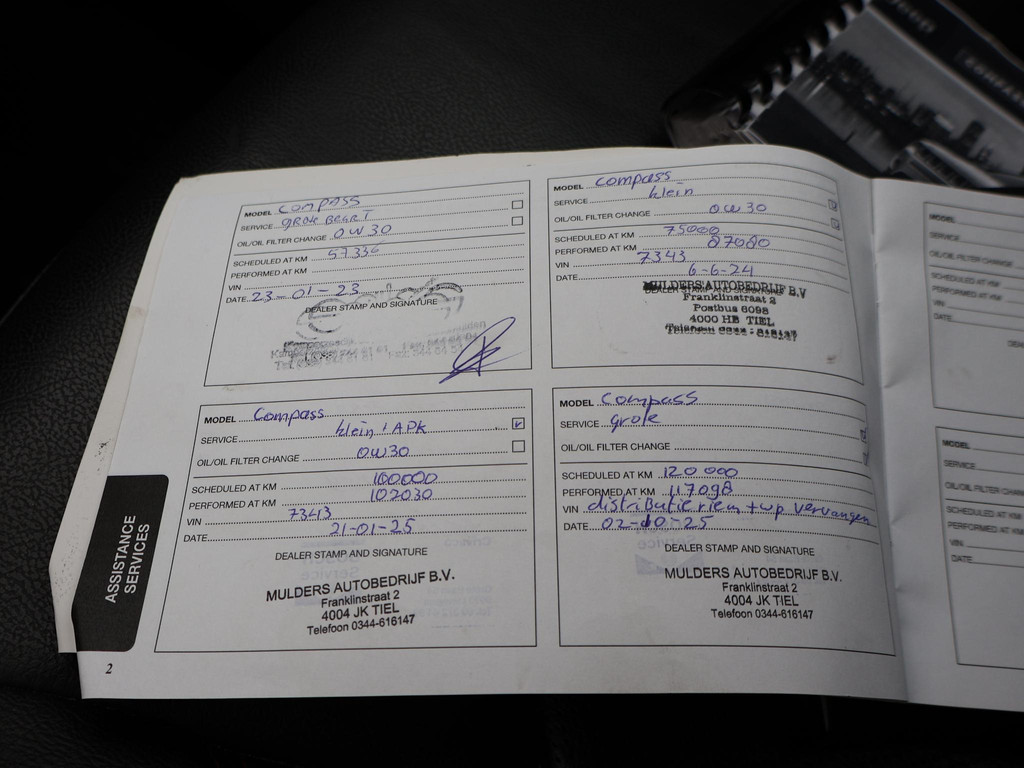 MODEL Compass
SERVICE grote Beurt
OIL/OIL FILTER CHANGE 0W30
SCHEDULED AT KM 57336
PERFORMED AT KM
VIN
DATE 23-01-23
DEALER STAMP AND SIGNATURE
MODEL Compass
SERVICE klein
OIL/OIL FILTER CHANGE 0W30
SCHEDULED AT KM 75000
PERFORMED AT KM 87080
VIN 7343
DATE 6-6-24
DEALER STAMP AND SIGNATURE
MULDERS AUTOBEDRIJF B.V
Franklinstraat 2
Postbus 6098
4000 HB TIEL
MODEL Compass
SERVICE klein / APK
OIL/OIL FILTER CHANGE 0W30
SCHEDULED AT KM 100000
PERFORMED AT KM 102030
VIN 7343
DATE 21-01-25
DEALER STAMP AND SIGNATURE
MULDERS AUTOBEDRIJF B.V.
Franklinstraat 2
4004 JK TIEL
Telefoon 0344-616147
MODEL Compass
SERVICE grote
OIL/OIL FILTER CHANGE
SCHEDULED AT KM 120000
PERFORMED AT KM 117098
VIN distributie riem + wp vervangen
DATE 02-10-25
DEALER STAMP AND SIGNATURE
MULDERS AUTOBEDRIJF B.V.
Franklinstraat 2
4004 JK TIEL
Telefoon 0344-616147
ASSISTANCE
SERVICES
2
MODEL
SERVICE
OIL/OIL FILTER CHANGE
SCHEDULED AT KM
PERFORMED AT KM
VIN
DATE
MODEL
SERVICE
OIL/OIL FILTER CHANGE
SCHEDULED AT KM
PERFORMED AT KM
VIN
DATE
Jeep